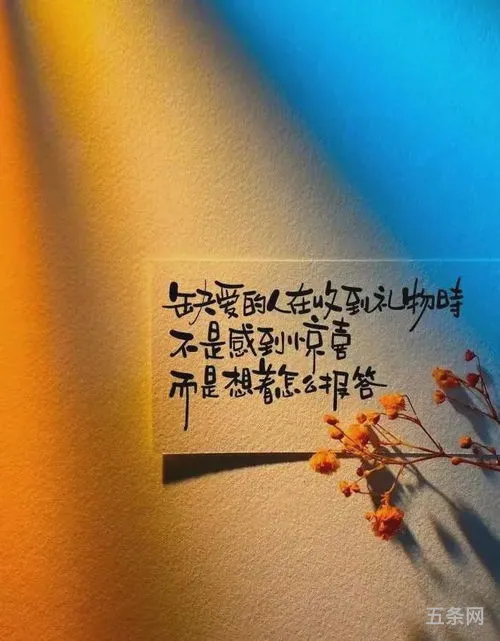 缺爱的人在收到礼物時
不是感到惊喜
而是想着怎么报答
五条网